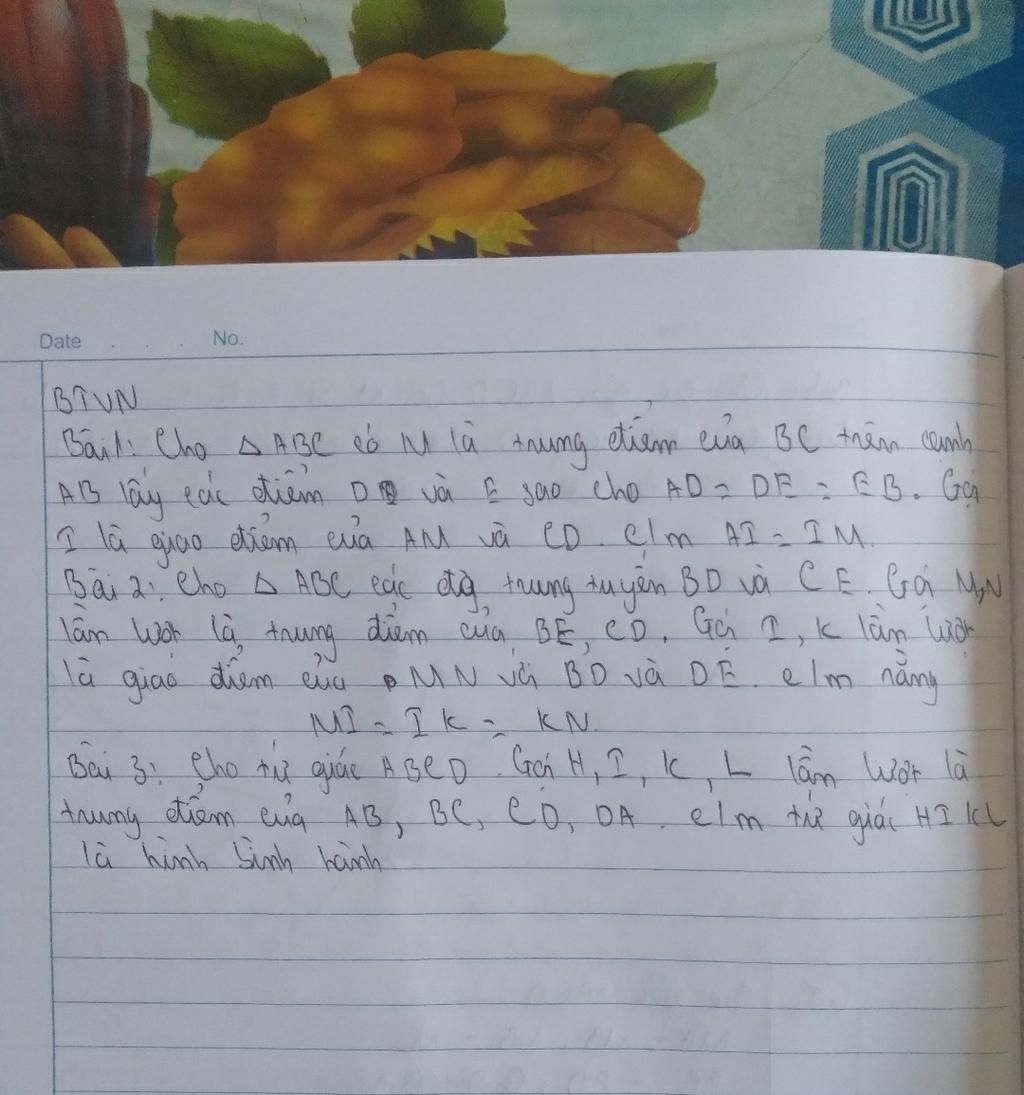 Date . . . No.
BTVN
Bài 1: Cho △ ABC có M là trung điểm của BC trên cạnh
AB lấy các điểm D và E sao cho AD = DE = EB. Gọi
I là giao điểm của AM và CD. c/m AI = IM.
Bài 2: Cho △ ABC các đg trung tuyến BD và CE. Gọi M,N
lần lượt là trung điểm của BE, CD. Gọi I, K lần lượt
là giao điểm của MN với BD và DE. c/m rằng
MI = IK = KN.
Bài 3: Cho tứ giác ABCD. Gọi H, I, K, L lần lượt là
trung điểm của AB, BC, CD, DA. c/m tứ giác HIKL
là hình bình hành